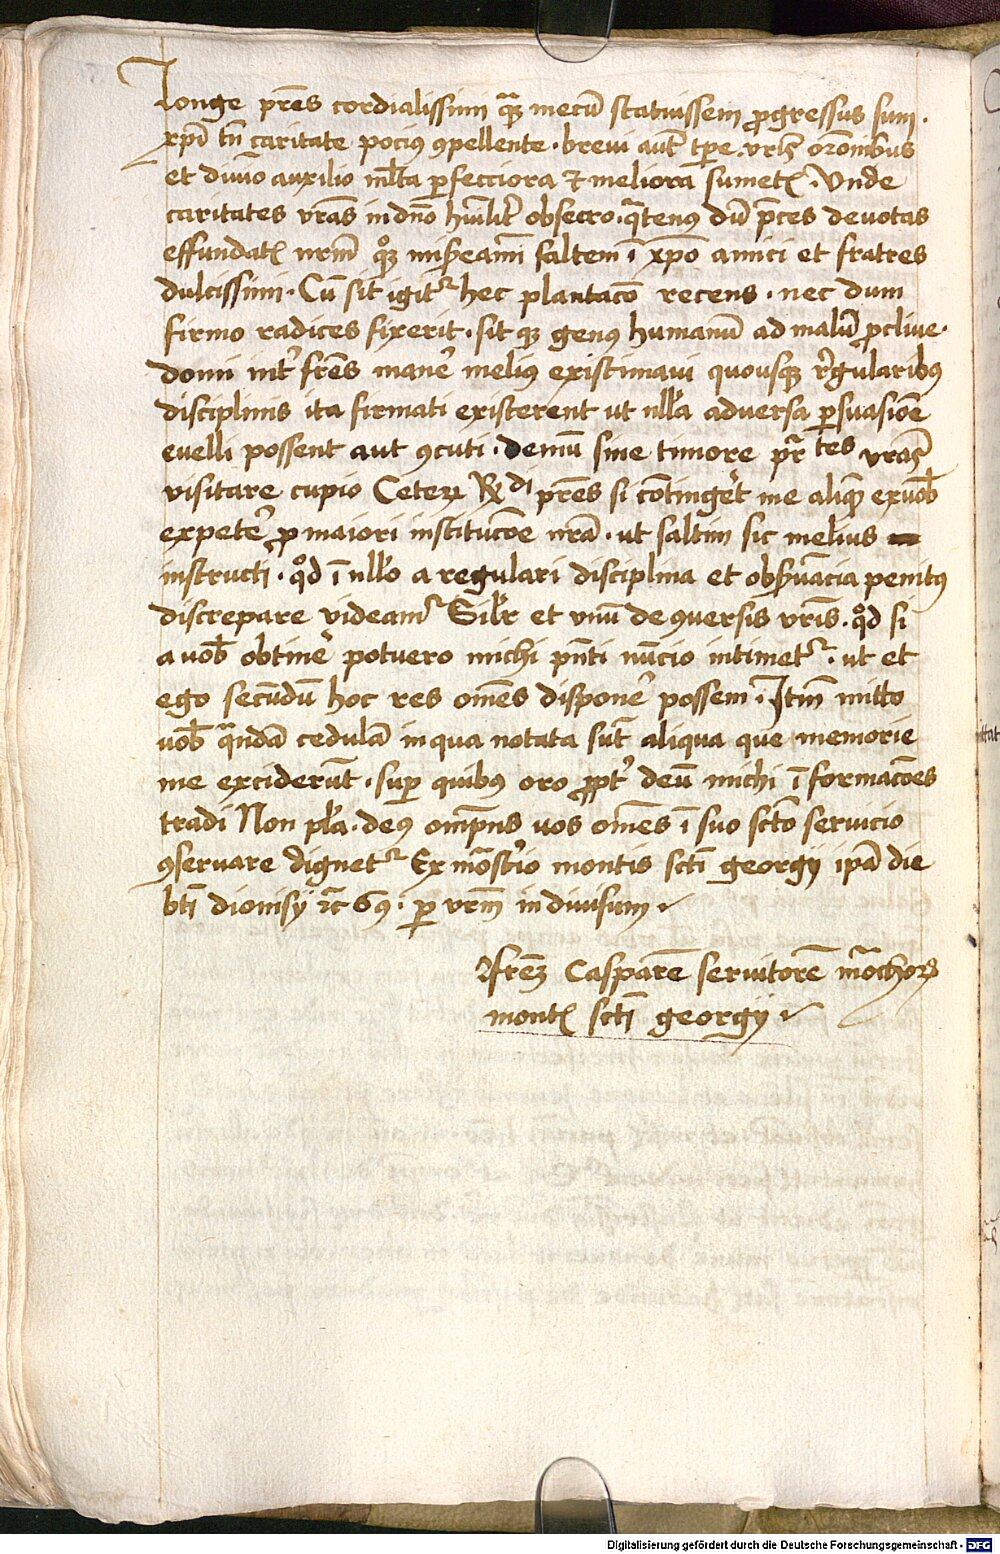 Longe pr̄es cordialissimi qua̅ mecu̅ statuissem ꝓgressus sum.
xp̅i tn̅ caritate pociꝰ ꝯpellente. brevi aut̅ tp̅e. vr̅is or̅onibus
et diui̅o auxilio ml̅ta ꝑfecciora ⁊ meliora sumetis. Vnde
caritates vr̅as in dn̅o hu̅ilit̾ obsecro. qͣtenus du̅ p̅ces deuotas
effundatis nr̅m qͦꝫ misȩami̅ saltem i̅ xp̅o amici et fratres
dulcissimi. Cu̅ sit igitᷣ hec plantaco̅ recens. nec dum
firmo radices fixerit. sit qꝫ genus humanu̅ ad malu̅ ꝓcliue.
domi int̾ fr̅es mane̾ meliꝰ existimaui quousqꝫ r̾gularibꝰ
disciplinis ita firmati existerent ut nll̾a adversa ꝑsuasio̅e
euelli possent aut ꝯcuti. demu̅ sine timore pr̅tes vr̅as
visitare cupio Ceteꝝ Rdi pr̅es si co̅tinge̾t me aliqͣ ex uob̅
expete̾ ꝓ maiori institucio̅e nr̅a. ut saltim sic melius
instructi. qͦd i̅ nll̾o a regulari disciplina et obs̾ua̅cia penitꝰ
discrepare videamᷣ Sil̾r et vnu̅ de ꝯuersis vr̅is. qͦd si
a uob̅ obtine̾ potuero michi pn̅ti nu̅cio intimetᷣ. ut et
ego secu̅du̅ hoc res om̅es dispone̾ possem. Itm̅ mitto
uob̅ qͣnda̅ cedula̅ in qua notata su̅t aliqua que memorie
me excideru̅t. suꝑ quibꝰ oro ꝓpt̾ deu̅ michi i̅formaco̅es
tradi Non pl̾a. deꝰ om̅pns uos om̅es i̅ suo sc̅to servicio
ꝯservare dignetᷣ Ex mo̅st̾io montis sc̅ti georgij ip̅a die
bt̅i dionisij ⁊c̅ 69. ꝑ vr̅m indiuisum
fr̅em Caspare̅ seruitore̅ mo̅choꝝ
montis sc̅ti georgij
Digitalisierung gefördert durch die Deutsche Forschungsgemeinschaft - DFG